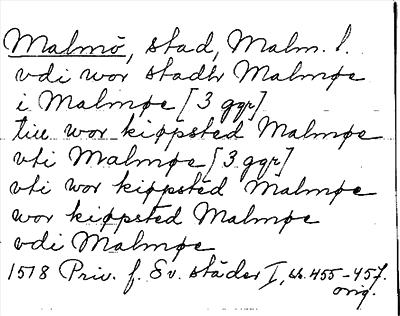 Malmö, stad, Malm. l.
vdi wor stadh Malmøe
i Malmøe [3 ggr]
till wor kiøpsted Malmøe
vti Malmøe [3 ggr]
vti wor kiøpsted Malmøe
wor kiøpsted Malmøe
vdi Malmøe
1578 Priv. f. Sv. städer I, ss. 455-457.
orig.